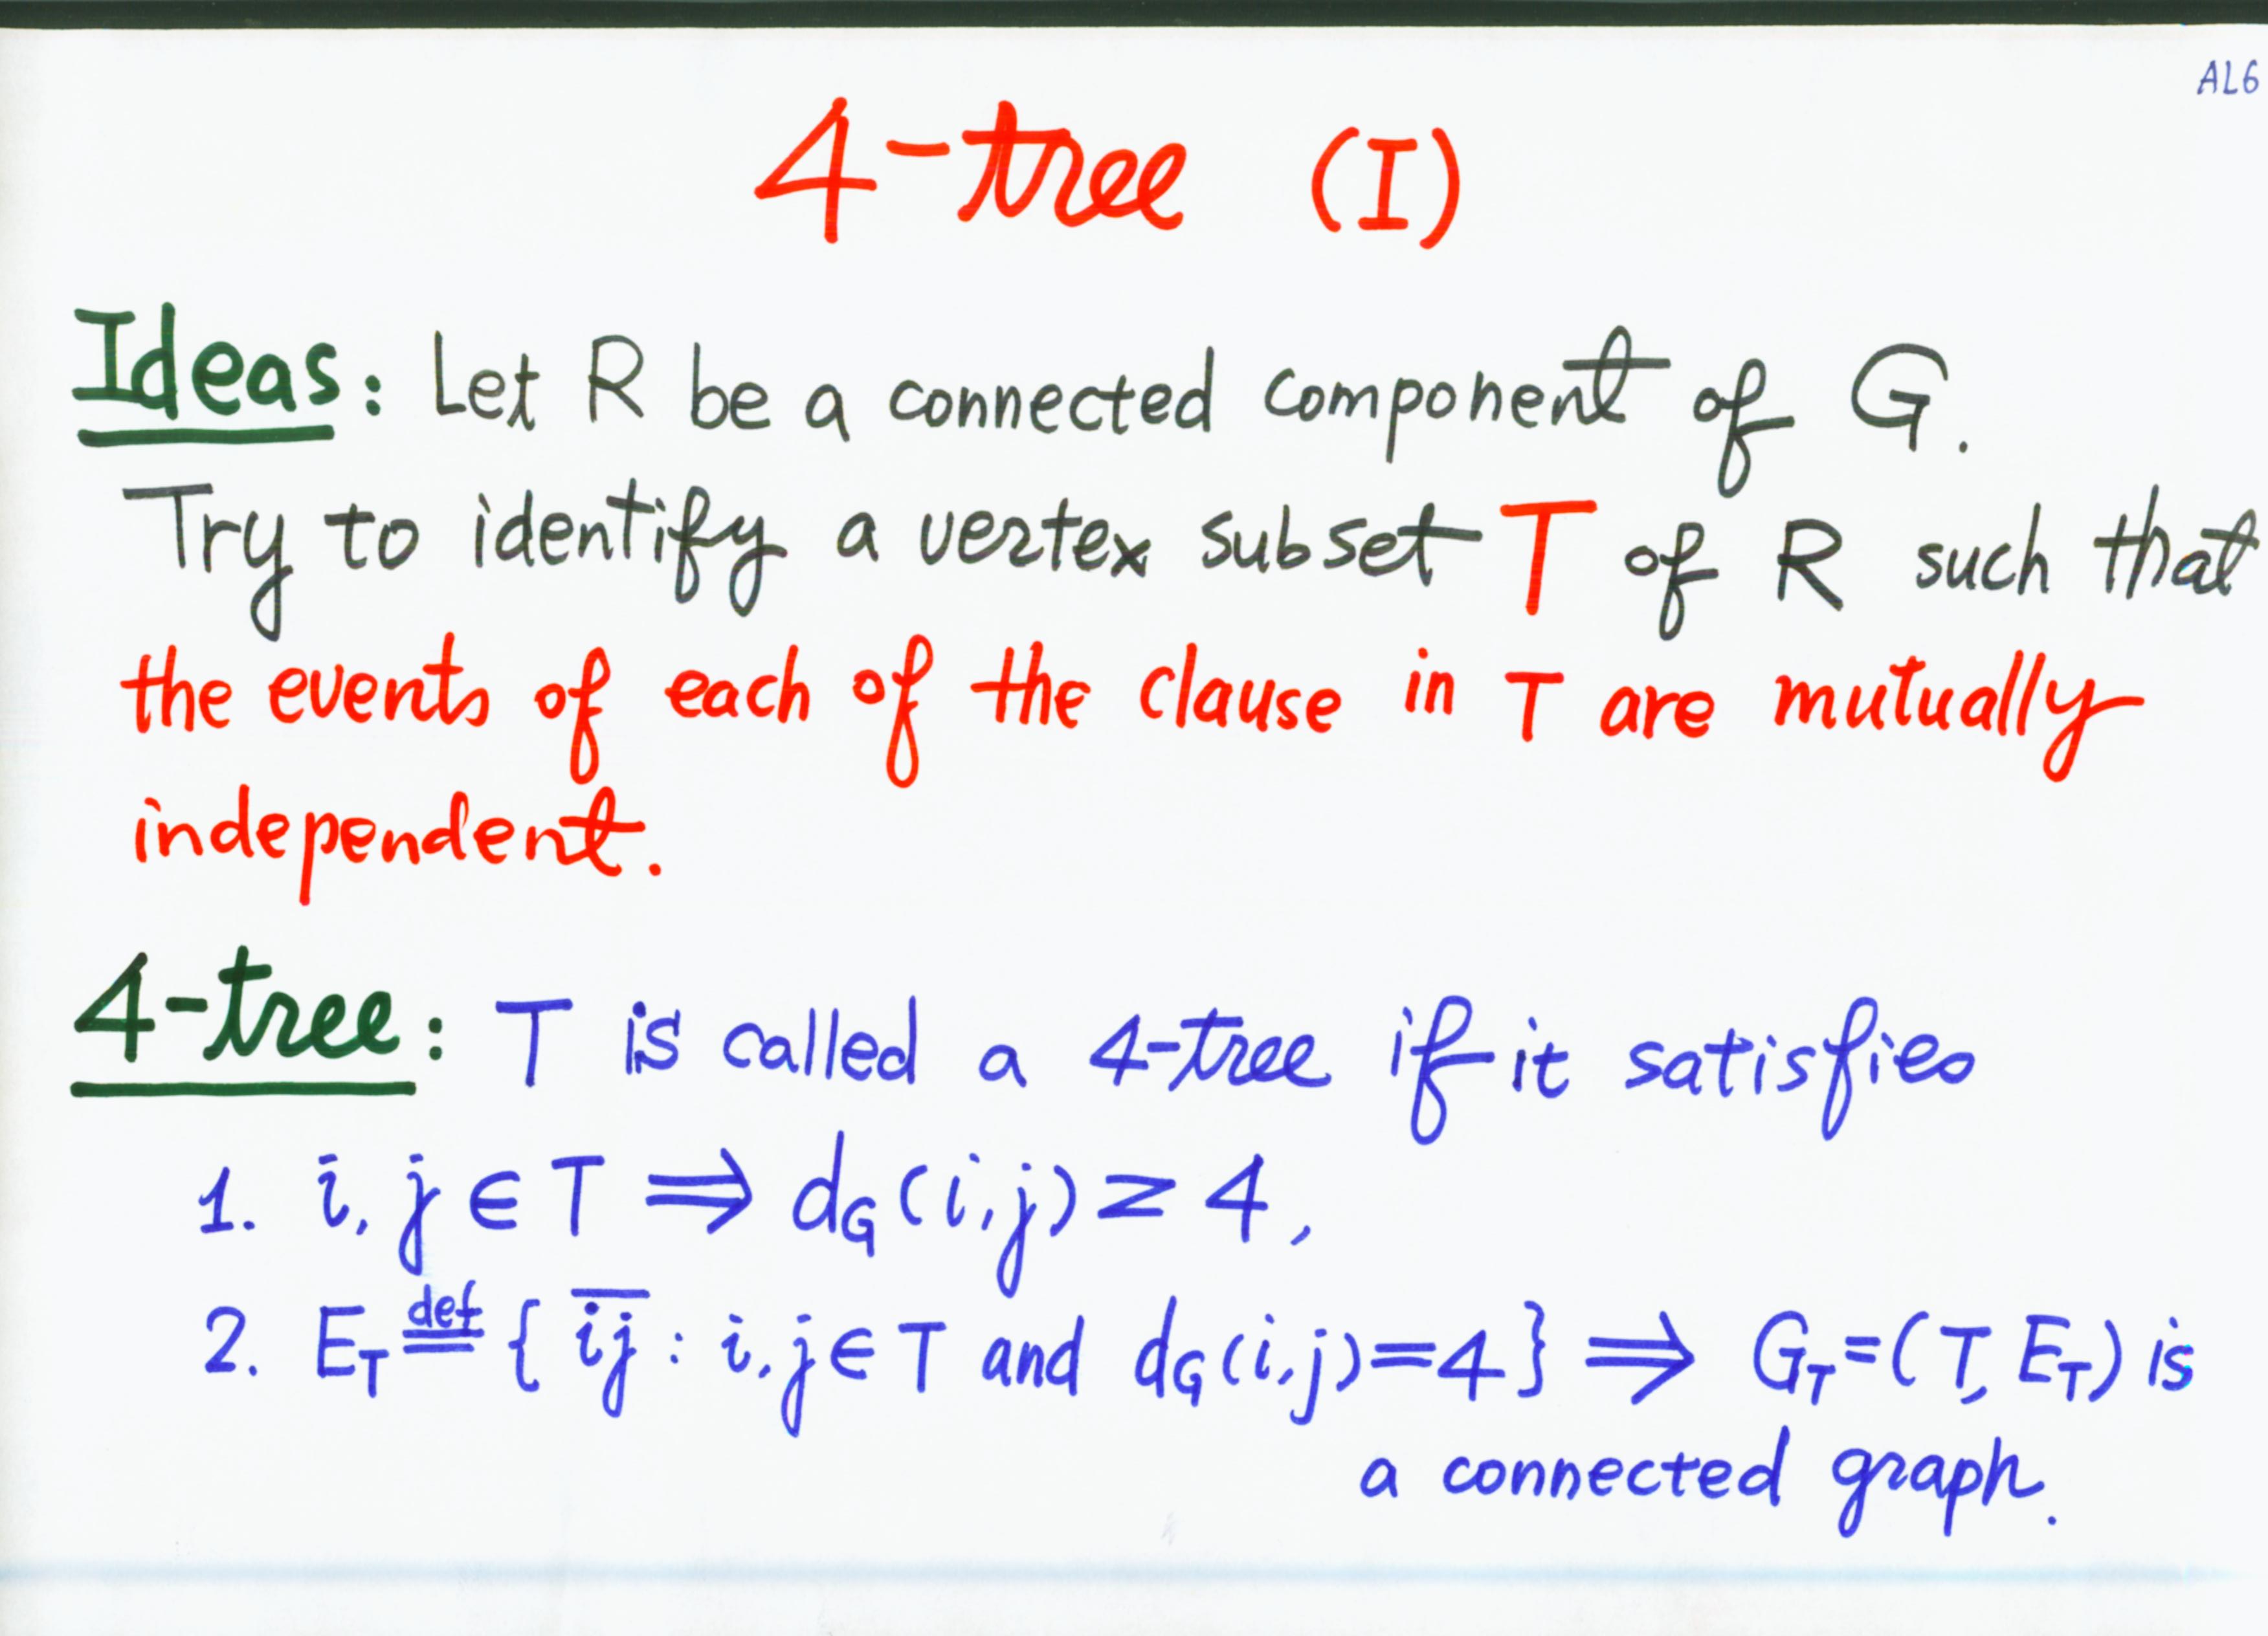 AL6
4-tree (I)
Ideas: Let R be a connected component of G.
Try to identify a vertex subset T of R such that
the events of each of the clause in T are mutually
independent.
4-tree: T is called a 4-tree if it satisfies
1. i, j ∈ T ⟹ d_G(i,j) ≥ 4,
2. E_T ≝ { \overline{ij} : i, j ∈ T and d_G(i,j)=4 } ⟹ G_T=(T, E_T) is
a connected graph.